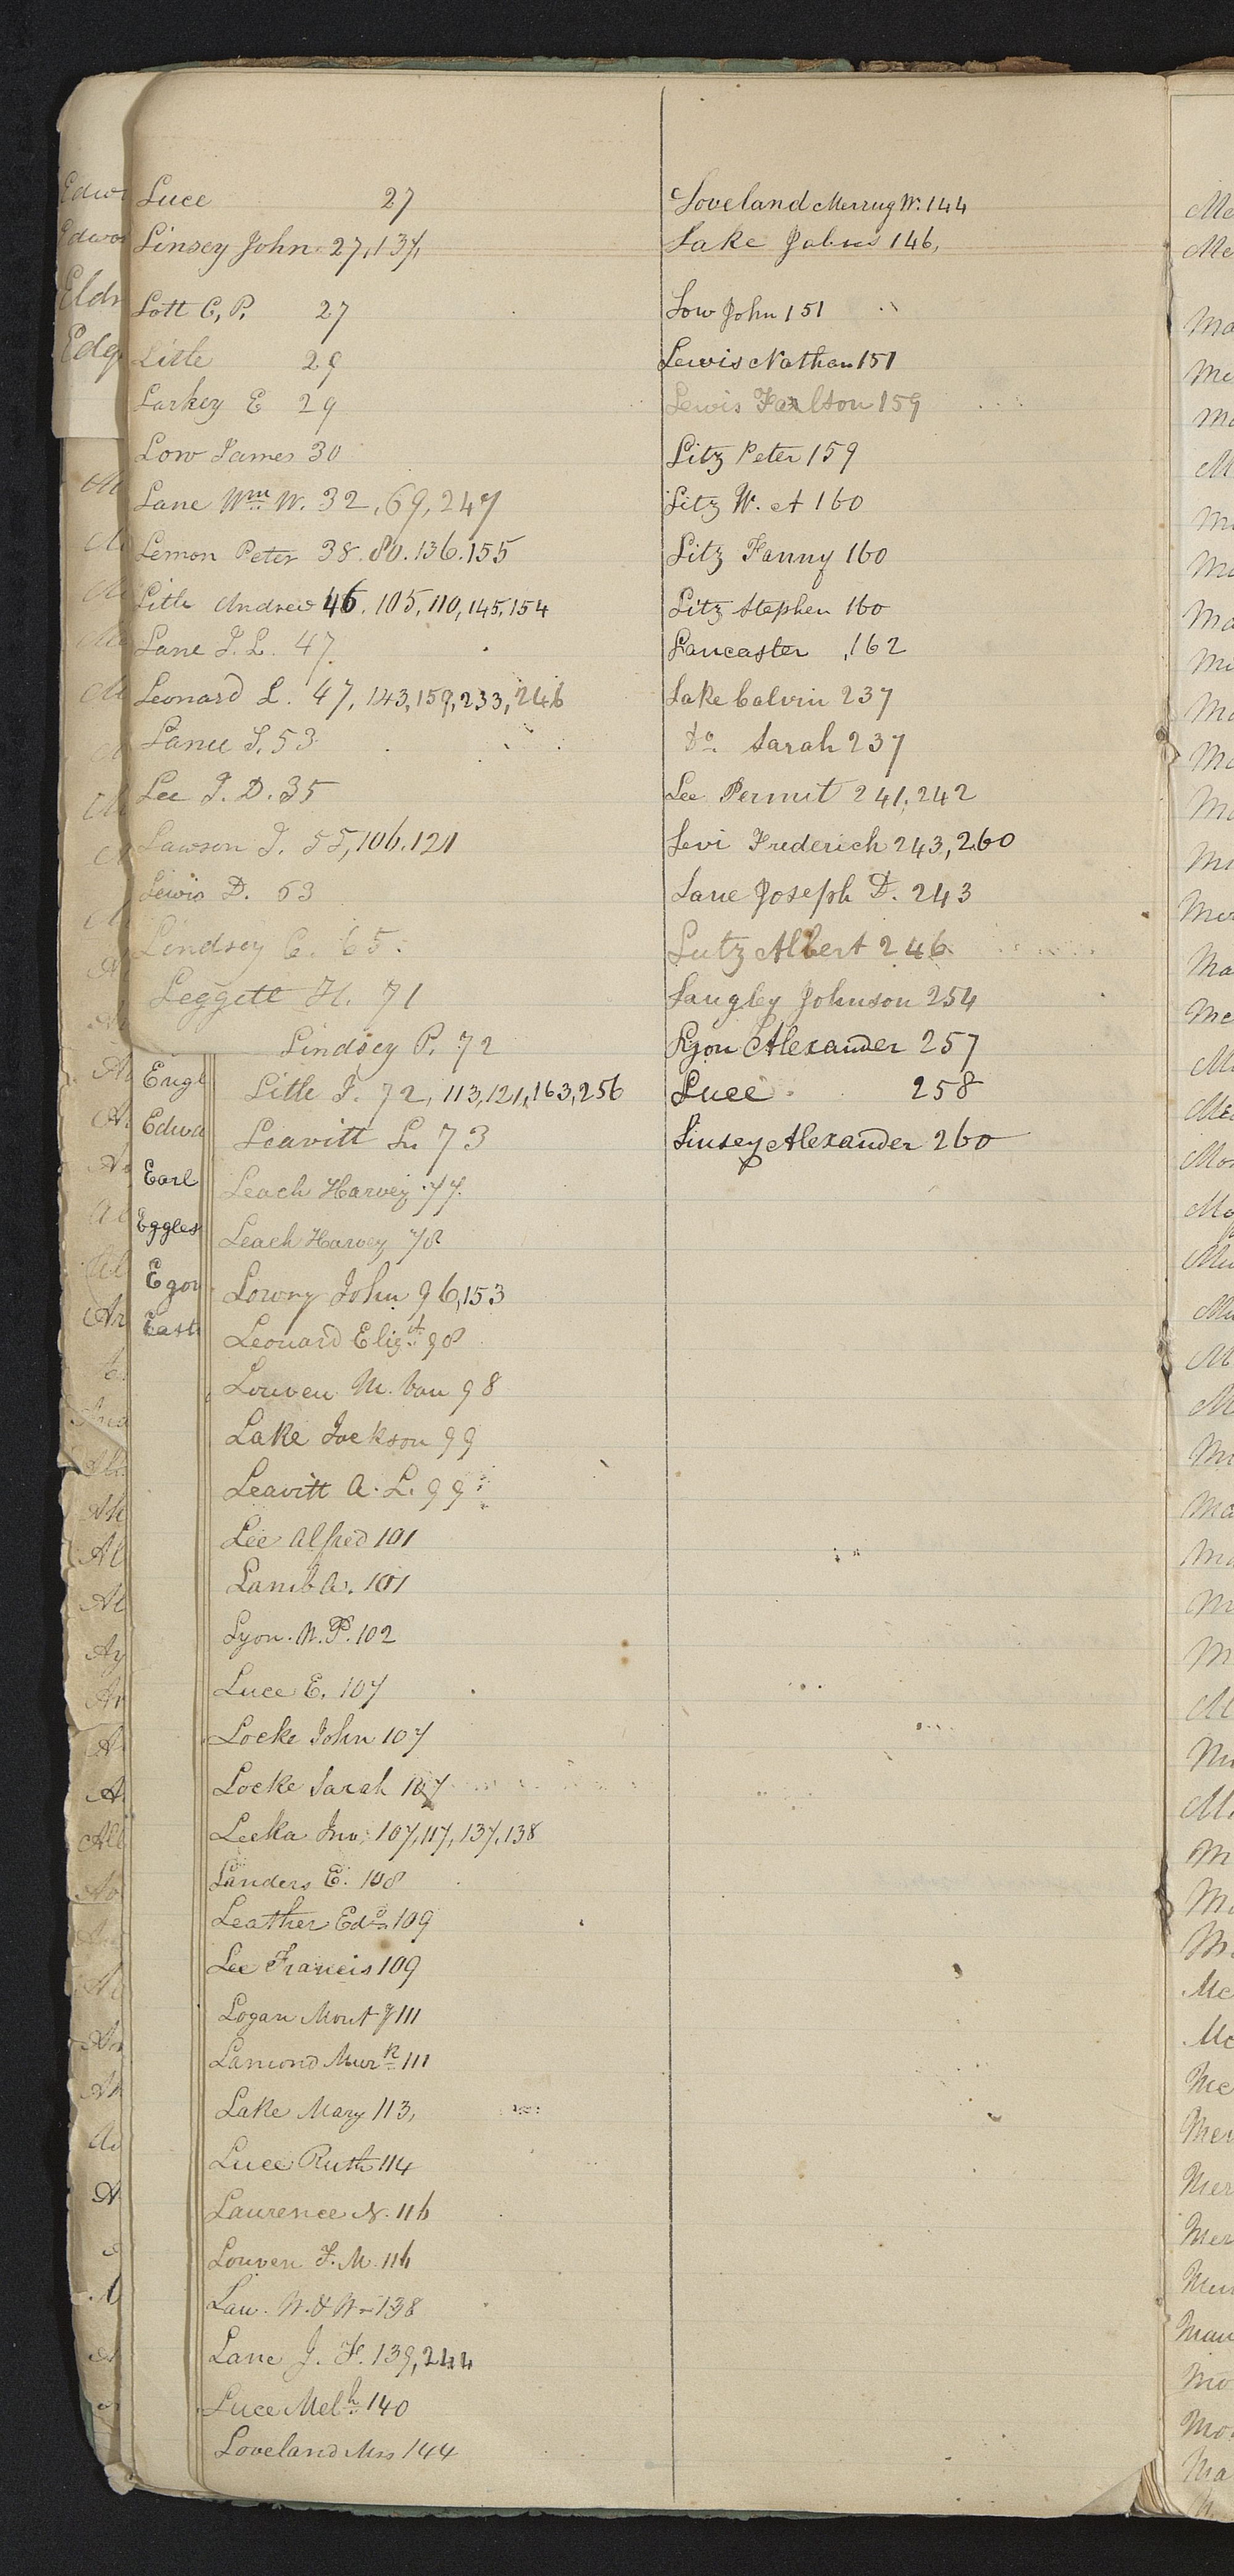 Luce 27
Linsey John 27, 137,
Lott C, P. 27
Litle 29
Larkey E 29
Low James 30
Lane Wm W. 32, 69, 247
Lemon Peter 38. 80. 136. 155
Litle Andrew 46. 105, 110, 145, 154
Lane J. L. 47
Leonard L. 47, 143, 159, 233, 246
Lanee J. 53
Lee J. D. 35
Lawson J. 55, 106. 121
Lewis D. 63
Lindsey C. 65
Leggett H. 71
Lindsey P. 72
Litle J. 72, 113, 121, 163, 256
Leavitt Lu 73
Leach Harvey 77
Leach Harvey 78
Lowry John 96, 153
Leonard Eligt 98
Louven M. Van 98
Lake Jackson 99
Leavitt A. L. 99
Lee Alfred 101
Lamb A. 101
Lyon. N. P. 102
Luce E. 107
Locke John 107
Locke Sarah 107
Leeka Jno. 107, 117, 137, 138
Landers E. 108
Leather Edd 109
Lee Francis 109
Logan Mont 111
Lamond 111
Lake Mary 113,
Luce Ruth 114
Laurence N. 116
Louven F. M. 116
Law. N. & W 138
Lane J. F. 139, 244
Luce Melh 140
Loveland Mrs 144
Loveland W. 144
Lake 146,
Low John 151
Lewis Nathan 151
Lewis 159
Litz Peter 159
Litz W. A 160
Litz Fanny 160
Litz Stephen 160
Lancaster, 162
Lake Calvin 237
Do. Sarah 237
Lee Permit 241, 242
Levi Frederich 243, 260
Lane Joseph D. 243
Lutz Albert 246
Langley Johnson 254
Lyon Alexander 257
Luce 258
Linsey Alexander 260
Engl
Edwa
Earl
Eggles
Egon
East